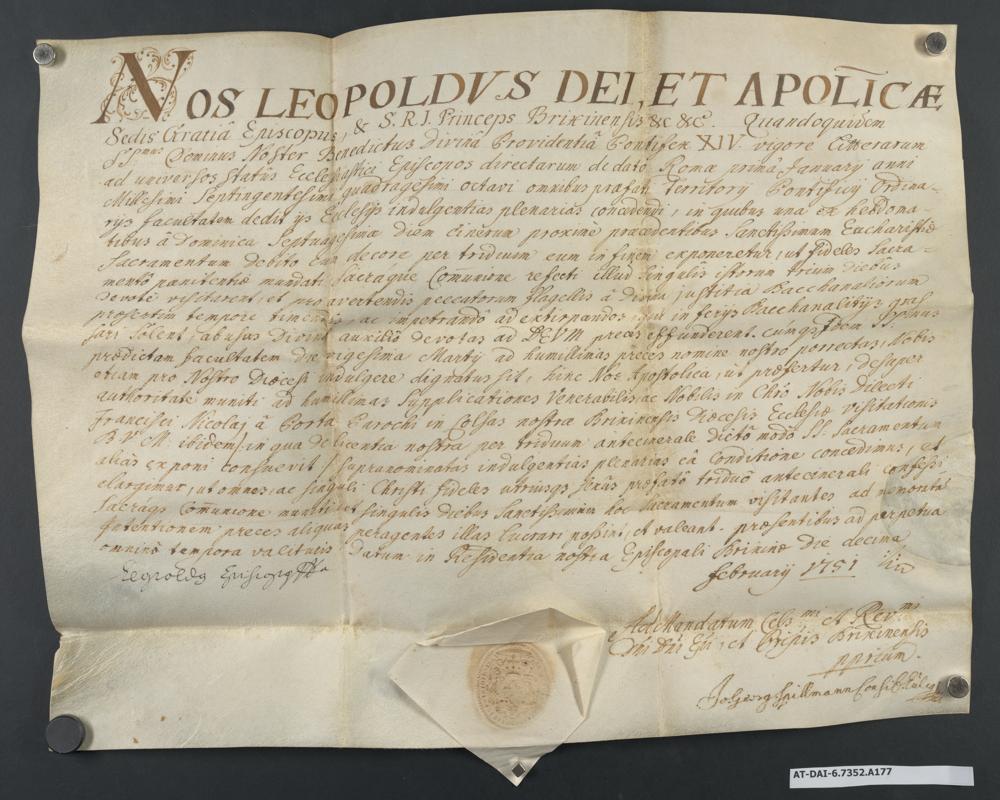 NOS LEOPOLDVS DEI, ET APOLICÆ
Sedis Gratiâ Episcopus, & S.R.I. Princeps Brixinensis &c &c. Quandoquidem
SSmus Dominus Noster Benedictus Divinâ Providentiâ Pontifex XIV vigore litterarum
ad universos status Ecclesiastici Episcopos directarum de dato Roma prima January anni
Millesimi Septingentesimi quadragesimi octavi omnibus præfati Territory Pontificy Ordina-
rys facultatem dedit ys Ecclesys indulgentias plenarias concedendi, in quibus una ex hebdoma-
tibus â Dominica Septuagesima diem Cinerum proxime præcedentibus Sanctissimum Eucharistiæ
Sacramentum debito cum decore per triduum eum in finem exponeretur, ut fideles Sacra-
mentô pœnitentiæ mundati Sacraque Comunione refecti illud singulis istorum trium diebus
devotè visitarent, et pro avertendis peccatorum flagellis â divina justitia Bacchanaliorum
præsertim tempore timendis, ac impetrandô ad extirpandos, qui in ferys Bacchanalitys gras-
sari solent, abusus Divino auxiliô devotas ad DEUM preces effunderent. cumq3 idem SSmus
prædictam facultatem die vigesima Marty ad humillimas preces nomine nostro porrectas, Nobis
etiam pro Nostro Diœcesi indulgere dignatus sit, hinc Nos Apostolica, ut præfertur, desuper
authoritate muniti ad humillimas Supplicationes Venerabilis, ac Nobilis in Chro Nobis dilecti
Francisci Nicolaj â Porta Parochi in Colsas nostræ Brixinensis Diœcesis Ecclesiæ visitationis
B. V. M. ibidem, in qua de licentia nostra per triduum antecinerale dictô modô SS. Sacramentum
aliàs exponi consuevit, supranominatas indulgentias plenarias eâ Conditione concedimus, et
elargimur, ut omnes, ac singuli Christi fideles utriusq3 sexûs præfatô triduô antecinerali confessi
Sacraq3 Comunione muniti et singulis diebus Sanctissimum hoc Sacramentum visitantes ad
intentionem preces aliquas peragentes illas lucrari possint, et valeant. præsentibus ad perpetua
omninò tempora valituris Datum in Residentia nostra Episcopali Brixinæ die decima
february 1751
Leopoldq Episcopq
Ad Mandatum Celsmi et Revmi
Dni Dni Epi, et Prpis Brixinensis
pprium.
Jo Georg Spillmann
AT-DAI-6.7352.A177